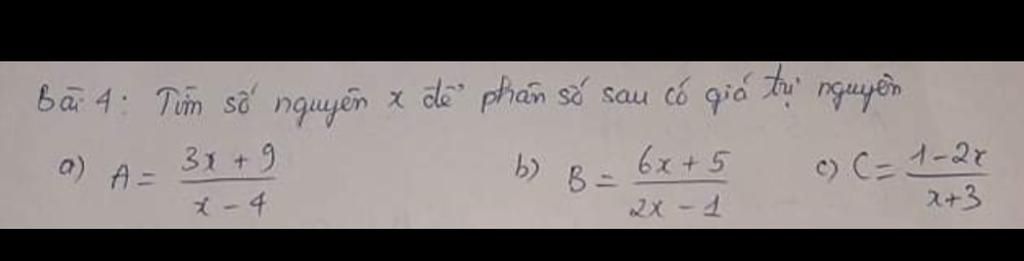 Bài 4: Tìm số nguyên x để phân số sau có giá trị nguyên
a) A = \frac{3x + 9}{x - 4} b) B = \frac{6x + 5}{2x - 1} c) C = \frac{1 - 2x}{x + 3}